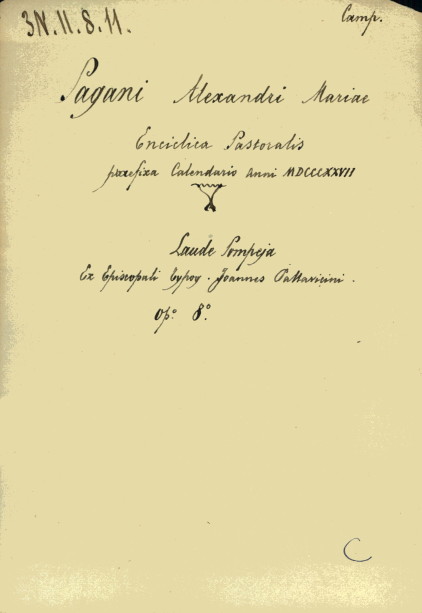 3N.11.8.11.
Camp.
Pagani Alexandri Mariae
Enciclica Pastoralis
praefixa Calendario Anni MDCCCXXVII
Laude Pompeja
Ex Episcopali Typog. Joannes Pallavicini.
op.º 8.º
C